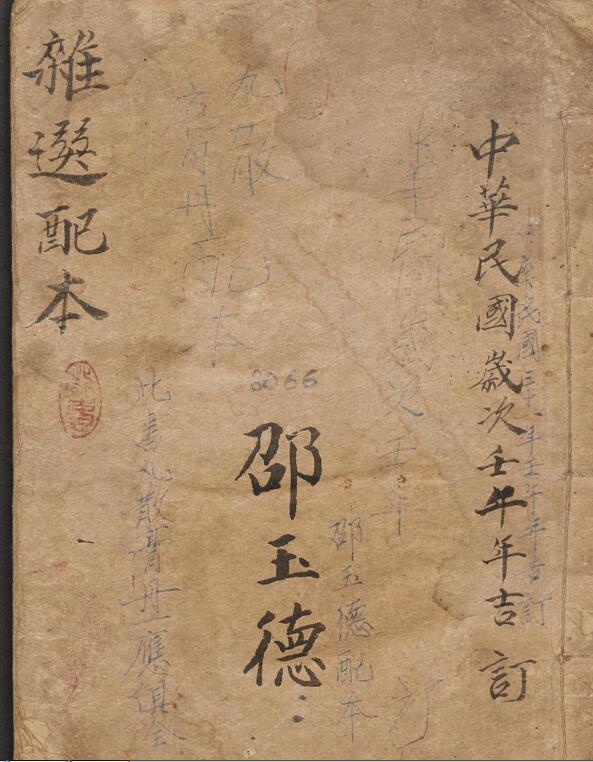 中華民國歲次壬午年吉訂
中華民國三十一年壬午年吉訂
中華民國歲次壬午年 訂
邵玉德配本
6066
邵玉德
丸散
膏丹配本
此書丸散膏丹一應俱全
雜選配本